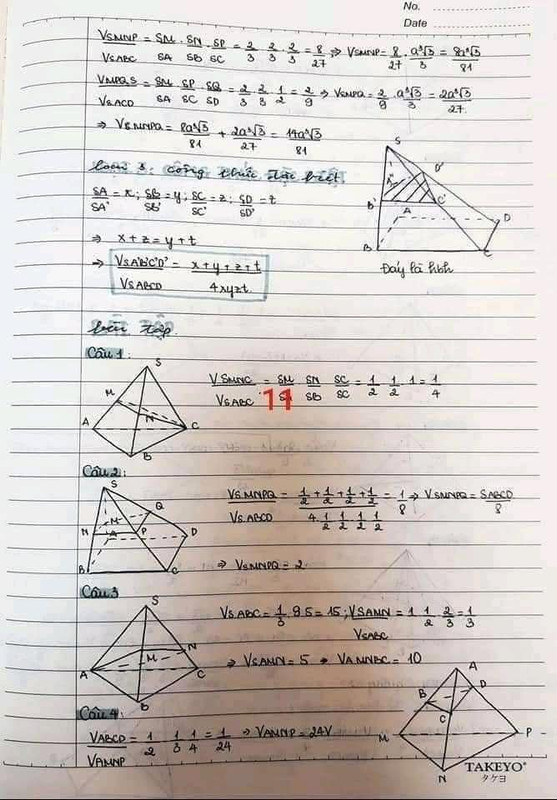 No.
Date
V_SMNP / V_SABC = SM/SA . SN/SB . SP/SC = 2/3 . 2/3 . 2/3 = 8/27 ⇒ V_SMNP = 8/27 . a³√3/3 = 8a³√3/81
V_MPQS / V_SACD = SM/SA . SP/SC . SQ/SD = 2/3 . 2/3 . 1/2 = 2/9 ⇒ V_SMPQ = 2/9 . a³√3/3 = 2a³√3/27
⇒ V_SMNPQ = 8a³√3/81 + 2a³√3/27 = 14a³√3/81
Loại 3: công thức đặc biệt
SA/SA' = x ; SB/SB' = y ; SC/SC' = z ; SD/SD' = t
⇒ x + z = y + t
⇒ V_SA'B'C'D' / V_SABCD = (x + y + z + t) / 4xyzt
S
A'
D'
B'
C'
A
D
B
C
Đáy là hbh
luyện tập
Câu 1:
S
M
N
A
C
B
V_SMNC / V_SABC = SM/SA . SN/SB . SC/SC = 1/2 . 1/2 . 1 = 1/4
11
Câu 2:
S
M
Q
N
A
P
D
B
C
V_SMNPQ / V_SABCD = (1/2 + 1/2 + 1/2 + 1/2) / (4 . 1/2 . 1/2 . 1/2 . 1/2) = 1/8 ⇒ V_SMNPQ = SABCD/8
⇒ V_SMNPQ = 2
Câu 3
S
M
N
A
C
B
V_SABC = 1/3 . 9.5 = 15 ; V_SAMN / V_SABC = 1 . 1/2 . 2/3 = 1/3
⇒ V_SAMN = 5 ⇒ V_AMNBC = 10
Câu 4:
V_ABCD / V_AMNP = 1/2 . 1/3 . 1/4 = 1/24 ⇒ V_AMNP = 24V
A
B
D
C
M
P
N
TAKEYO®
タケヨ